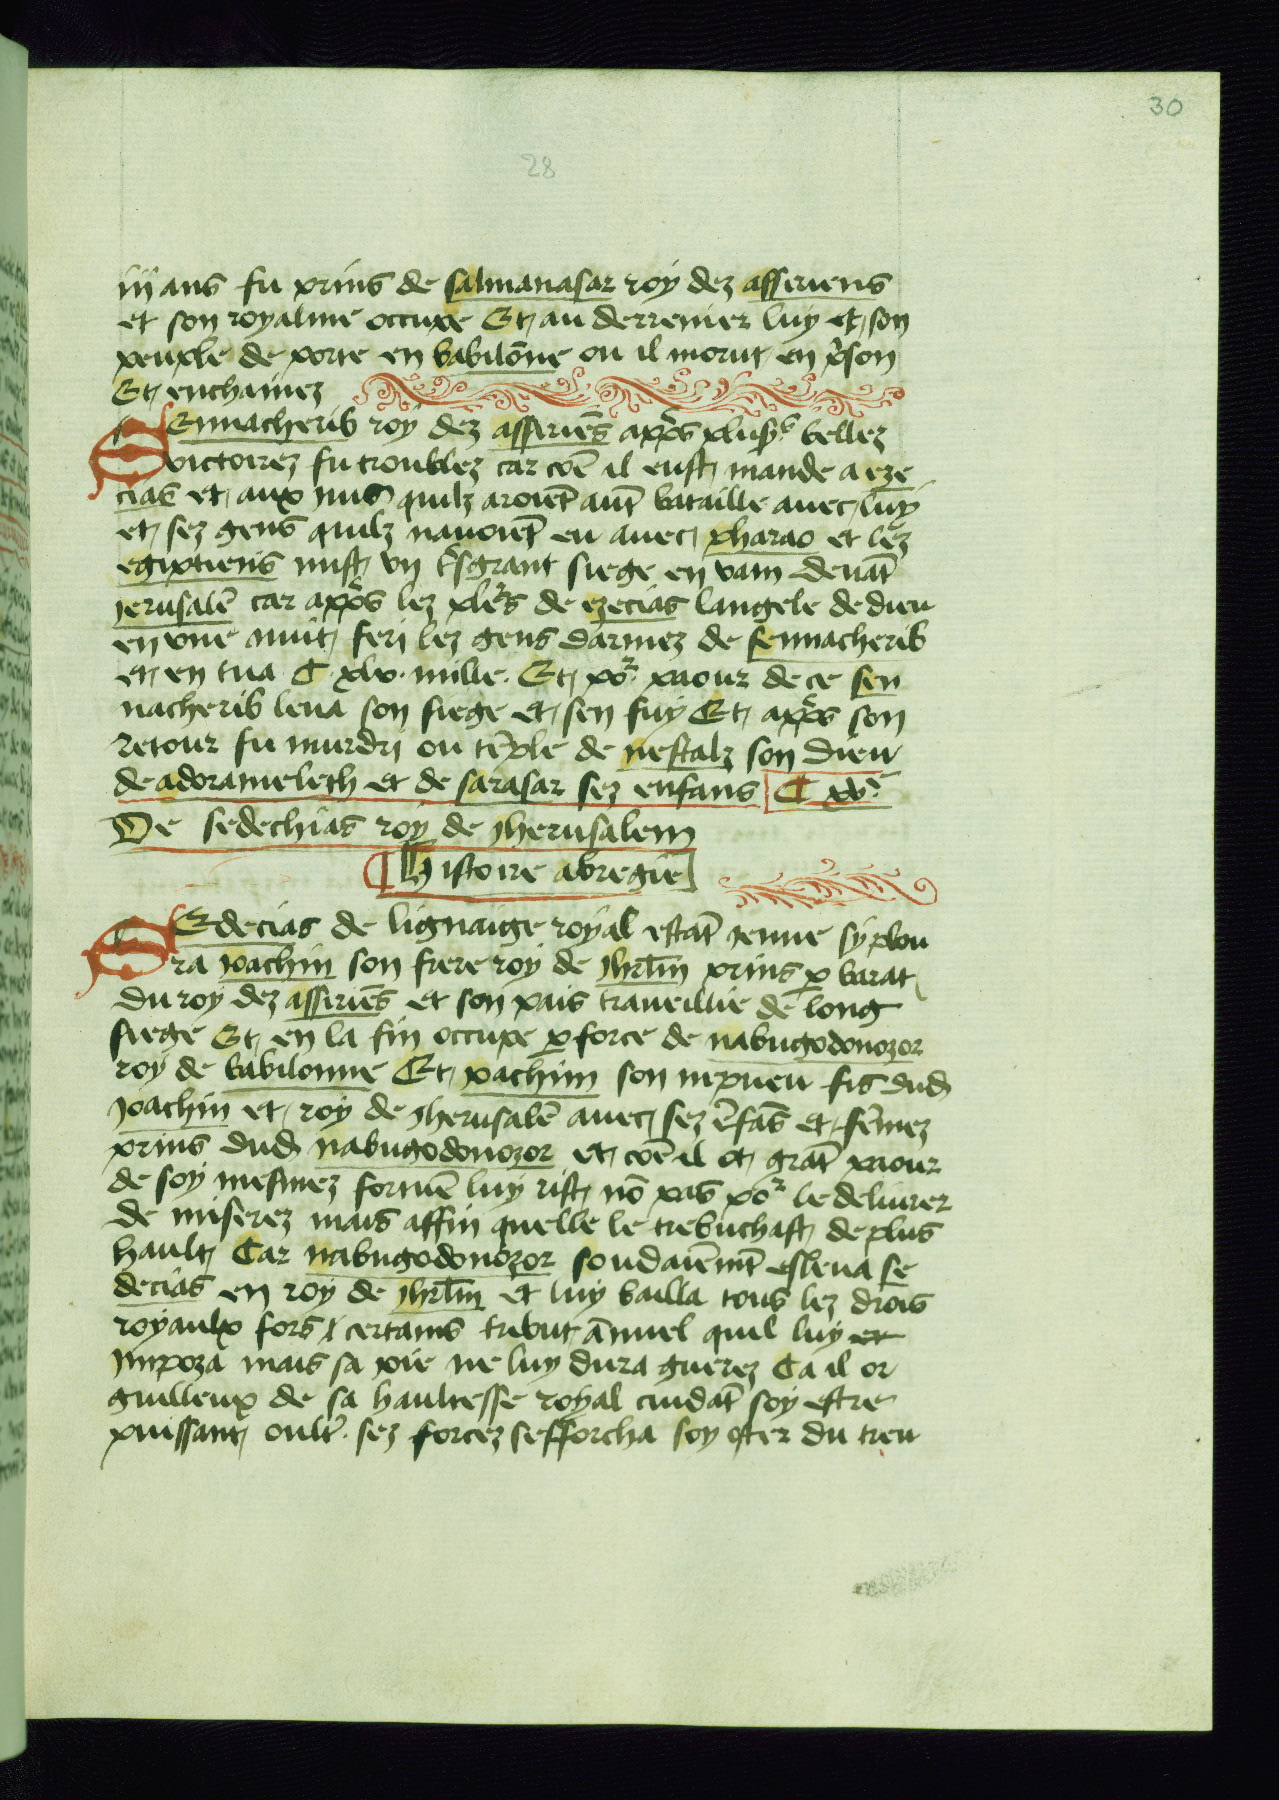 30
28
iij ans fu prins de salmanasar roy dez assiriens
et son royalme occupe Et au derrenier luy et son
peuple de porte en babilōne ou il morut en pͥson
Et enchainez
SEnnacherib roy dez assiriēs appͬs plusʳˢ bellez
victoirez fu troublez car cōe il eust mande a eze
cias et aux juis quilz aroiēt aūt bataille avec luy
et sez gens quilz navoiēt eu avec pharao et lez
egiptiens mist vn tͬsgrant siege en vain devāt
jerusalē car appͬs lez plēͬs de ezecias langele de dieu
en vne nuit feri lez gens darmez de sennacherib
et en tua C xlv mille Et poͬ paour de ce sen
nacherib leva son siege et sen fuy Et appͬs son
retour fu murdri ou tēple de nestalz son dieu
de adorameleth et de sarasar sez enfans C xvͤ
De sedechias roy de jherusalem
Histoire abregie
SEdecias de lignaige royal estāt jenne sy plou
ra joachin son frere roy de jhrlm prins p barat
du roy dez assiriēs et son pais traveillie de long
siege Et en la fin occupe p force de nabugodonozor
roy de babilonne Et joachim son nepveu fis dud
joachin et roy de jherusalē avec sez ēfās et fēmez
prins dud nabugodonozor et cōe il ot grāt paour
de soy mesmez fortunē luy rist nō pas poͬ le delivrer
de miserez mais affin quelle le trebuchast de plus
hault Car nabugodonozor soudaiēmt esleva se
decias en roy de jhrlm et luy bailla tous lez drois
royaulx fors certains tribut ānuel quil luy et
jmpoza mais sa joie ne luy dura guerez Ca il or
guilleux de sa haultesse royal cuidāt soy estre
puissant oultͬ sez forcez sefforcha soy oster du treu